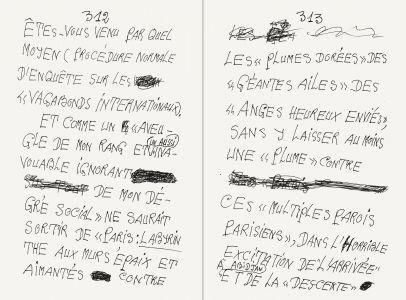 312
ÊTES-VOUS VENU PAR QUEL
MOYEN (PROCÉDURE NORMALE
D'ENQUÊTE SUR LES
«VAGABONDS INTERNATIONAUX),
ET COMME UN «AVEU-
GLE DE MON RANG ET
VOUABLE IGNORANT
DE MON DÉ-
GRÉ SOCIAL» NE SAURAIT
SORTIR DE «PARIS: LABYRIN
THE AUX MURS ÉPAIX ET
AIMANTÉS CONTRE
313
LES «PLUMES DORÉES» DES
«GÉANTES AILES» DES
«ANGES HEUREUX ENVIÉS»,
SANS Y LAISSER AU MOINS
UNE «PLUME» CONTRE
CES «MULTIPLES PAROIS
PARISIENS», DANS L'HORRIBLE
EXCITATION DE L'ARRIVÉE
À ABIDJAN
ET DE LA «DESCENTE»